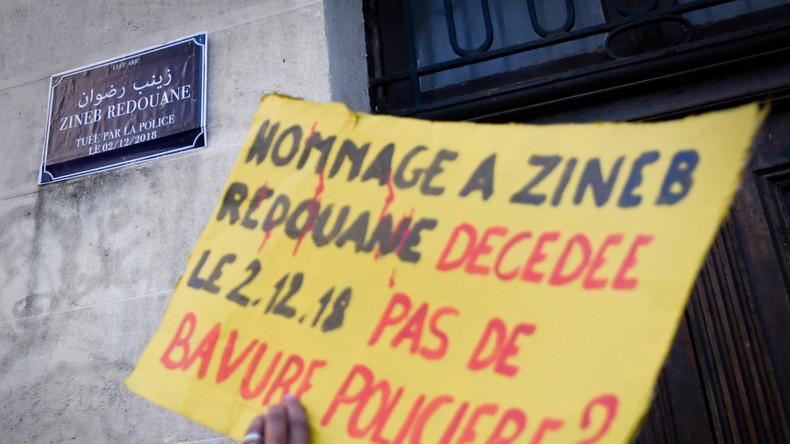 زينب رضوان
ZINEB REDOUANE
TUÉE PAR LA POLICE
LE 02/12/2018
HOMMAGE A ZINEB
REDOUANE DECEDEE
LE 2.12.18 PAS DE
BAVURE POLICIERE ?